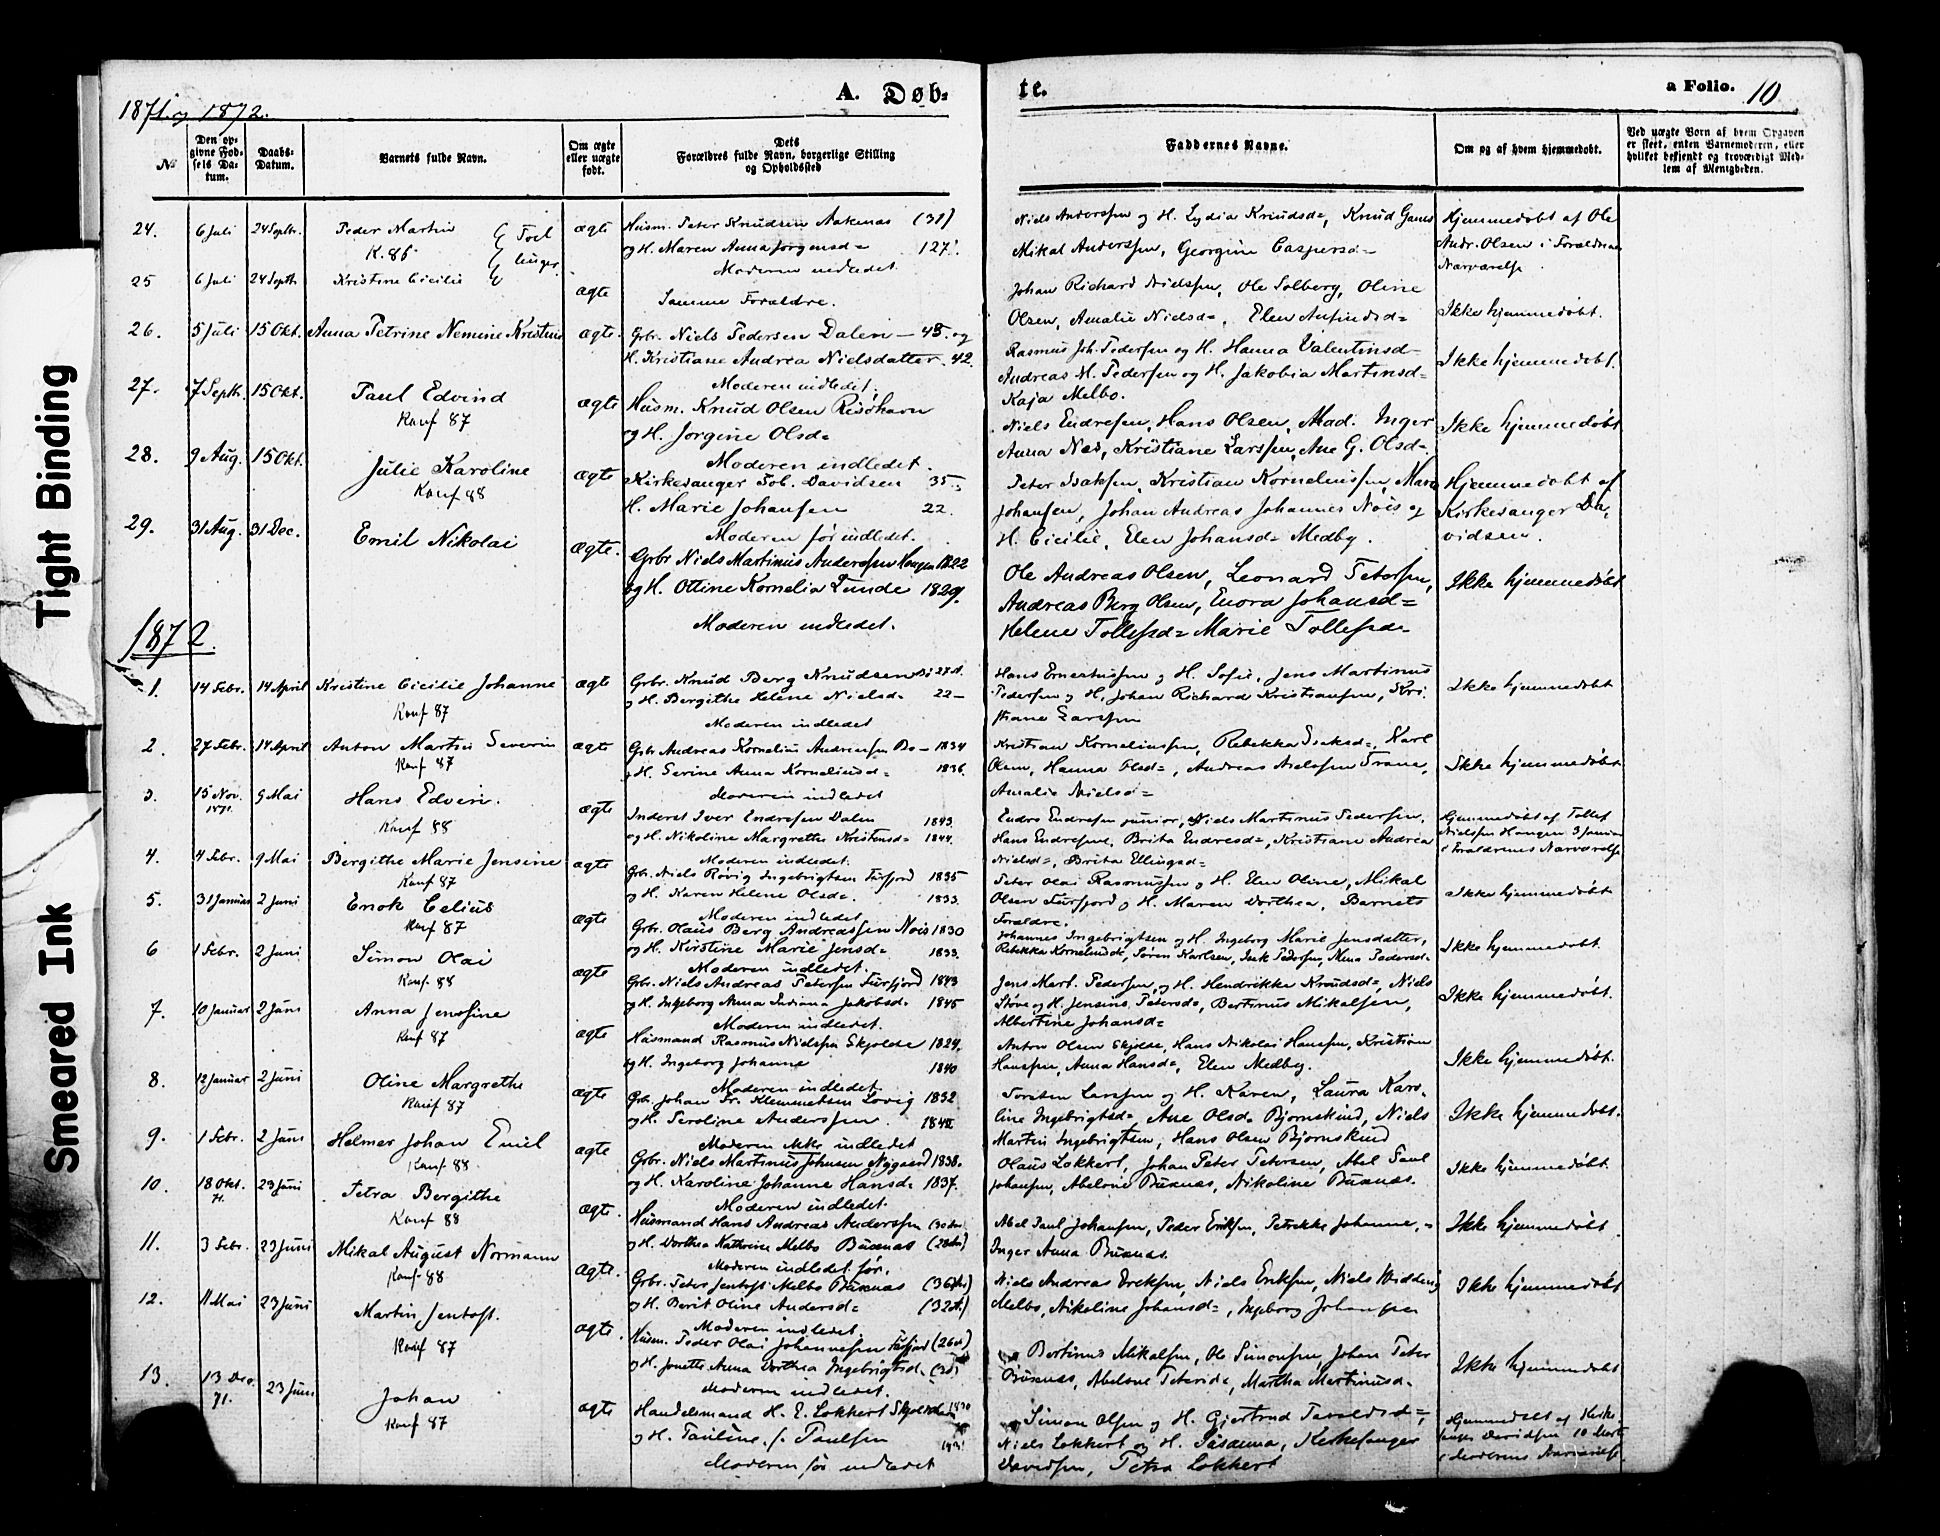 1871 og 1872.
A. Døb-
te.
a Folio. 10
No
Den op-
givne Fød-
sels Da-
tum.
Daabs-
Datum.
Barnets fulde Navn.
Om ægte
eller uægte
født.
Dets
Forældres fulde Navn, borgerlige Stilling
og Opholdssted
Faddernes Navne.
Om og af hvem hjemmedøbt.
Ved uægte Børn af hvem Opgaven
er skeet, enten Barnemoderen, eller
hvilket bekjendt og troværdigt Med-
lem af Menigheden.
24. 6 Juli 24 Septbr. Peder Martin ægte Husm. Peter Knudsen Aakenas (31)
K. 86 og H. Maren Anna Jørgensd= 27
Moderen indledet
Niels Anderssen og H. Lydia Knudsd=, Knud
Mikal Anderssen, Georgine Caspersd=
Hjemmedøbt af Ole
Andr. Olsen i Forældrenes
Nærværelse.
25 6 Juli 24 Septb. Kristine Cicilie ægte Samme Forældre.
Johan Richard Nielssen, Ole Solberg, Oline
Olsen, Amalie Nielsd=, Elen
Ikke hjemmedøbt.
26. 5 Juli 15 Okt. Anna Petrine Nemine Kristine ægte. Grbr. Niels Pedersen Dalen — 45 og
H. Kristiane Andrea Nielsdatter. 42.
Moderen indledet.
Rasmus Joh. Pedersen og H. Hanna Valentinsd=
Andreas M. Pedersen og H. Jakobia Martinsd=
Kaja Melbo.
Ikke hjemmedøbt.
27. 7 Septb. 15 Okt. Paul Edvind ægte Husm. Knud Olsen Risøhavn
Konf 87 og H. Jørgine Olsd=
Moderen indledet.
Niels Endresen, Hans Olsen, Mad. Inger
Anna Næs, Kristiane Larssen, Ane G. Olsd=
Ikke hjemmedøbt
28. 9 Aug. 15 Okt. Julie Karoline ægte Kirkesanger Tob. Davidsen 35
Konf 88 H. Marie Johansen 22.
Moderen før indledet.
Peter Isaksen, Kristian Kornelinssen, Maren
Johansen, Johan Andreas Johannes Nøis og
H. Cicilie, Elen Johansd= Medby.
Hjemmedøbt af
Kirkesanger Da-
vidsen.
29. 31 Aug. 31 Dec. Emil Nikolai ægte. Grbr Niels Martinus Anderssen Haugen 1822
og H. Ottine Kornelia Lunde 1829.
Moderen indledet.
Ole Andreas Olsen, Leonard Petersen,
Andreas Berg Olsen, Enora Johansd=
Helene Tollefsd= Marie Tollefsd=
Ikke hjemmedøbt
1872.
1. 14 Febr. 14 April Kristine Cicilie Johanne ægte Grbr. Knud Berg Knudsen 27
Konf 87 og H. Bergithe Helene Nielsd= 22
Moderen indledet
Hans Ernestussen og H. Sofie, Jens Martinus
Pedersen og H, Johan Richard Kristiansen, Kri-
stiane Larssen
Ikke hjemmedøbt
2. 27 Febr. 14 April Anton Martin Severin ægte Grbr Andreas Kornelius Andreassen Bø — 1834
Konf 87 og H. Serine Anna Korneliusd= 1836.
Moderen indledet
Kristian Korneliussen, Rebekka Isaksd=, Karl
Olsen, Hanna Olsd=, Andreas Nielssen Trane,
Amalie Nielsd=
Ikke hjemmedøbt
3. 15 Nov. 1871. 9 Mai Hans Edvin. ægte Inderst Iver Endresen Dalen 1843
Konf 88 og H. Nikoline Margrethe Kristensd= 1844.
Moderen indledet.
Endre Endresen junior, Niels Martinus Pedersen,
Hans Endresen, Brita Endresd=, Kristiane Andrea
Nielsd=, Brita Ellingsd=
Hjemmedøbt af Tollef
Nielssen Haugen 3 Januar
i Forældrenes Nærværelse
4. 4 Febr. 9 Mai Bergithe Marie Jensine ægte Grb. Niels Røvig Ingebrigtsen Furfjord 1835
Konf 87 og H. Karen Helene Olsd=. 1833.
Moderen indledet
Peter Olai Rasmussen og H. Elen Oline, Mikal
Olsen Furfjord og H. Maren Dorthea, Barnets
Forældre.
Ikke hjemmedøbt
5. 31 Januar 2 Juni Enok Celius ægte Grbr. Olaus Berg Andreassen Nøis 1830
Konf 87 og H. Kirstine Marie Jensd= 1833.
Moderen indledet.
Johannes Ingebrigtsen og H. Ingeborg Marie Jensdatter,
Rebekka Korneliusd=, Søren Karlsen, Isak Pedersen, Anna Pedersd=
Ikke hjemmedøbt.
6 1 Febr. 2 Juni Simon Olai ægte Grbr. Niels Andreas Petersen Furfjord 1843
Konf. 88 og H. Ingeborg Anna Indiana Jakobsd= 1845
Moderen indledet.
Jens Mart. Pedersen, og H. Hendrikke Knudsd=, Niels
Støve og H. Jensine Petersd=, Bertinus Mikalsen,
Albertine Johansd=
Ikke hjemmedøbt.
7. 10 Januar 2 Juni Anna Jensine ægte Husmand Rasmus Nielssen Skjolde 1824.
Konf 87 og H. Ingeborg Johanne 1840
Moderen indledet.
Anton Olsen Skjolde, Hans Nikolai Hanssen, Kristian
Hanssen, Anna Hansd=, Elen Medby.
Ikke hjemmedøbt.
8. 12 Januar 2 Juni Oline Margrethe ægte Grb. Johan Fr. Klemmetsen Lovig 1832
Konf 87 og H. Seroline Anderssen. 184
Moderen ikke indledet
Torsten Larssen og H. Karen, Laura Karo-
line Ingebrigtsd=, Ane Olsd= Bjørnskind, Niels
Martin Ingebrigtsen, Hans Olsen Bjørnskind
Ikke hjemmedøbt.
9. 1 Febr. 2 Juni Helmer Johan Emil ægte Grbr. Niels Martinus Johnsen Nygaard 1838.
Konf 88 og H. Karoline Johanne Hansd= 1837.
Moderen indledet.
Olaus Lokkert, Johan Peter Petersen, Abel Paul
Johansen, Abelone Buxnæs, Nikoline Buxnæs.
Ikke hjemmedøbt.
10. 18 Okt. 71. 23 Juni Petra Bergithe ægte. Husmand Hans Andreas Anderssen (30 Aar)
Konf 88 og H. Dorthea Kathrine Melbo Buxnæs (28 Aar)
Moderen indledet før.
Abel Paul Johansen, Peder Eriksen, Petrikke Johanne,
Inger Anna Buxnæs.
Ikke hjemmedøbt
11. 3 Febr. 23 Juni Mikal August Normann ægte. Grbr. Peter Jentoft Melbo Buxnæs (36 A)
Konf 88 og H. Berit Oline Andersd= (32 A)
Moderen indledet.
Niels Andreas Ereksen, Niels Eriksen, Niels Widding
Melbo, Nikoline Johansd=, Ingeborg Johansen
Ikke hjemmedøbt
12. 11 Mai 23 Juni Martin Jentoft. ægte. Husm. Peder Olai Johannesen (26 A)
Konf 87 og H. Jonette Anna Dorthea Ingebrigtsd= (30)
Moderen indledet.
Bertinus Mikalsen, Ole Simonsen, Johan Peter
Buxnæs, Abelone Petersd=, Martha Martinusd=
Ikke hjemmedøbt
13. 13 Dec. 71. 23 Juni Johan ægte Handelsmand H. E. Lokkert Skjolde 1830
Konf 87 og H. Pauline f. Paulsen
Moderen før indledet
Simon Olsen og H. Gjertrud
Niels Lokkert og H. Susanna, Kirkesanger
Davidsen, Petra Lokkert
Hjemmedøbt af Kirke-
sanger Davidsen 10 Marts
i Moderens Nærværelse
Tight Binding
Smeared Ink